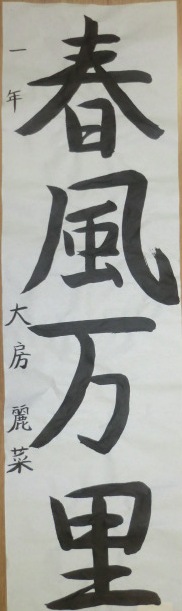 春風万里
一年 大房麗菜